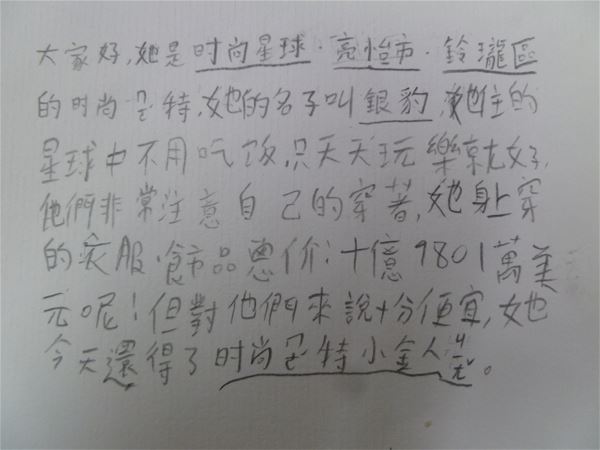 大家好,她是时尚星球·亮怡市·鈴瓏區
的时尚㠯特,她的名子叫銀豹,她住的
星球中不用吃饭,只天天玩樂就好,
他們非常注意自己的穿著,她身上穿
的衣服·飾品總价:十億9801萬美
元呢!但對他們來說十分便宜,她
今天還得了时尚㠯特小金人ㄐㄧㄤˇ。